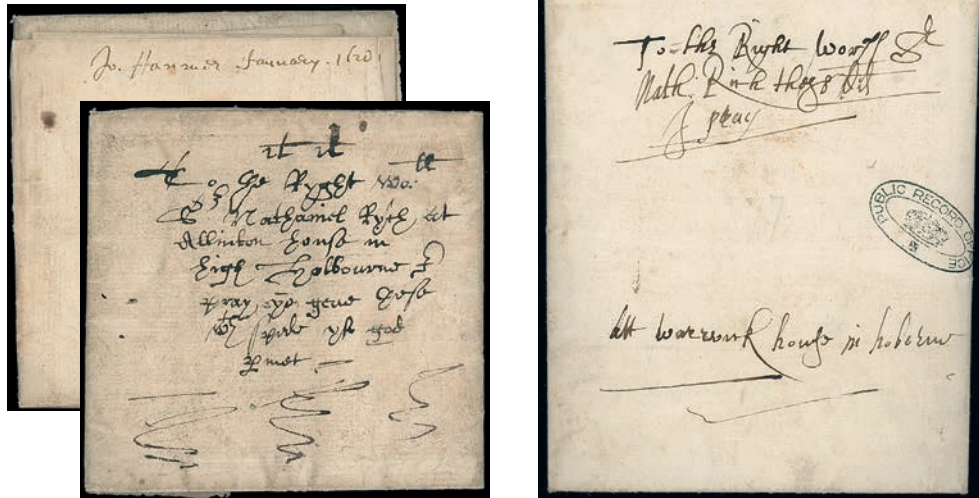 Jo. January.
To the Ryght wo: ll
Sr Nathaniel Rych, at
Allinton house in
high Holbourne I
pray yo geve these
wth speede yf god
pmet
To the Right worpll Sr
Nath: Rich these
I pray
PUBLIC RECORD OFFICE
att warwick house in holborne